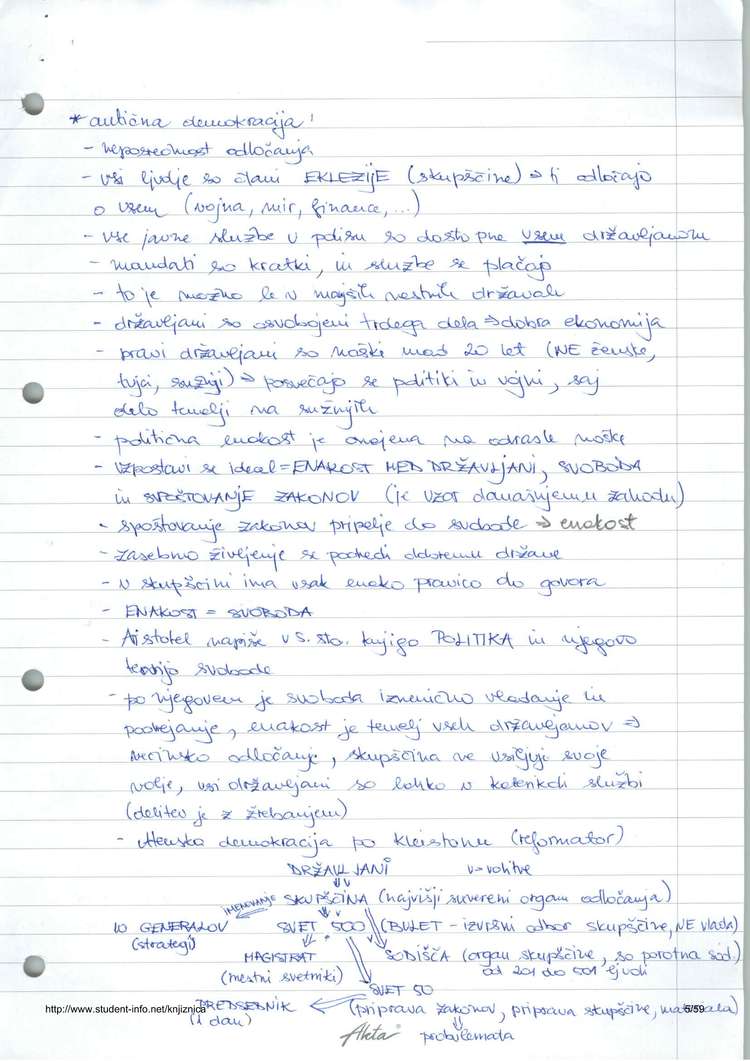 * antična demokracija!
- neposrednost odločanja
- vsi ljudje so člani EKLEZIJE (skupščine) ⇒ ti odločajo
o vsem (vojna, mir, finance, ...)
- vse javne službe v polisu so dostopne vsem državljanom
- mandati so kratki, in službe se plačajo
- to je možno le v manjših mestnih državah
- državljani so osvobojeni trdega dela ⇒ dobra ekonomija
- pravi državljani so moški nad 20 let (NE ženske,
tujci, sužnji) ⇒ posvečajo se politiki in vojni, saj
delo temelji na sužnjih
- politična enakost je omejena na odrasle moške
- vzpostavi se ideal = ENAKOST MED DRŽAVLJANI, SVOBODA
in SPOŠTOVANJE ZAKONOV (je vzor današnjemu zahodu)
- spoštovanje zakonov pripelje do svobode ⇒ enakost
- zasebno življenje se podredi dobremu države
- v skupščini ima vsak enako pravico do govora
- ENAKOST = SVOBODA
- Aristotel napiše v 5. sto. knjigo POLITIKA in njegovo
teorijo svobode
- po njegovem je svoboda izmenično vladanje in
podrejanje, enakost je temelj vseh državljanov ⇒
večinsko odločanje, skupščina ne vsiljuje svoje
volje, vsi državljani so lahko v katerikoli službi
(delitev je z žrebanjem)
- Atenska demokracija po Kleistenu (reformator)
DRŽAVLJANI v → volitve
imenovanje SKUPŠČINA (najvišji suvereni organ odločanja)
10 GENERALOV SVET 500 (BULET - izvršni odbor skupščine, NE vlada)
(strategi) MAGISTRAT SODIŠČA (organ skupščine, so porotna sod.)
(mestni svetniki) od 201 do 501 ljudi
SVET 50
http://www.student-info.net/knjiznica PREDSEDNIK ⇐ (priprava zakonov, priprava skupščine, materiala) 5/59
(1 dan) Akta probulemata